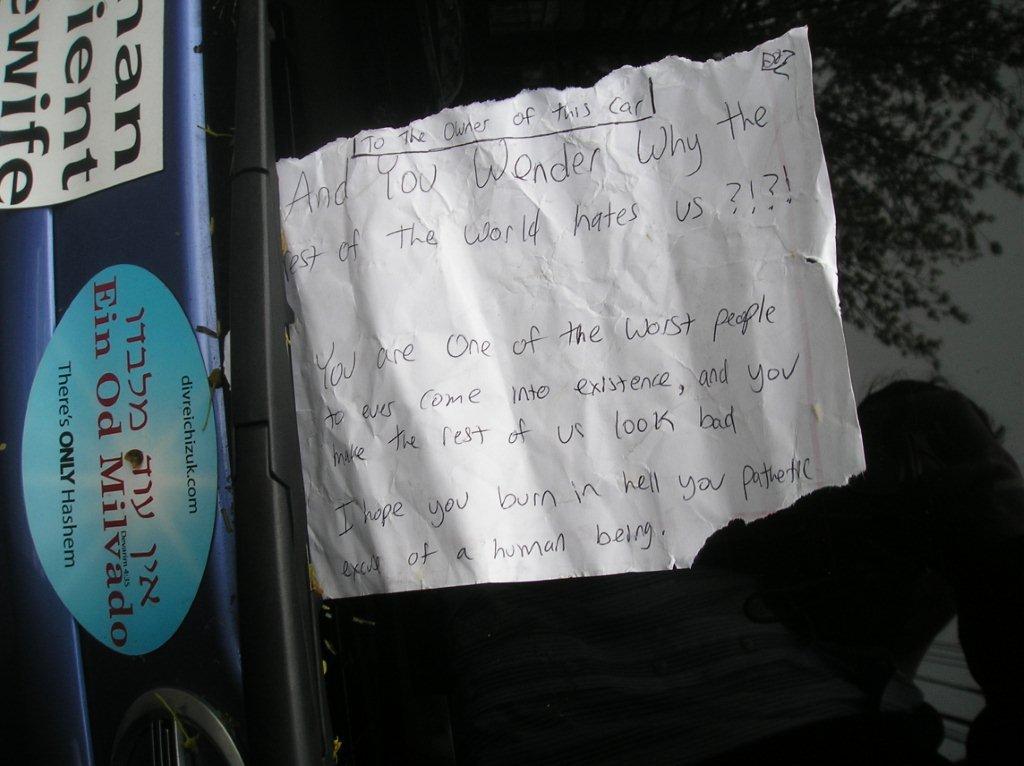 To the Owner of this Car
And You Wonder Why the
rest of the world hates us ?!?!
You are one of the worst people
to ever come into existence, and you
make the rest of us look bad
I hope you burn in hell you pathetic
excuse of a human being.
man
ient
ewife
divreichizuk.com
אין עוד מלבדו
Devarim 4:35
Ein Od Milvado
There's ONLY Hashem